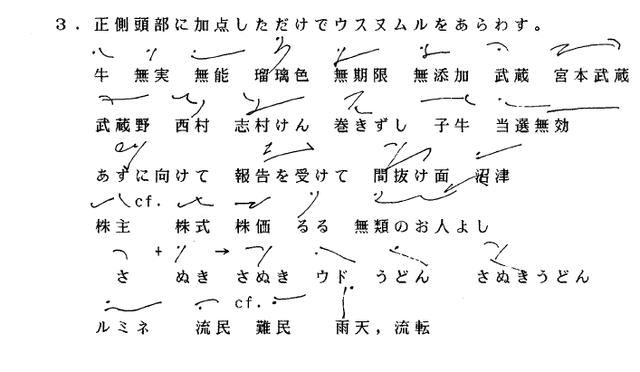 3．正側頭部に加点しただけでウスヌムルをあらわす。
牛　無実　無能　瑠璃色　無期限　無添加　武蔵　宮本武蔵
武蔵野　西村　志村けん　巻きずし　子牛　当選無効
あずに向けて　報告を受けて　間抜け面　沼津
cf.
株主　株式　株価　るる　無類のお人よし
＋　→
さ　ぬき　さぬき　ウド　うどん　さぬきうどん
cf.
ルミネ　流民　難民　雨天，流転